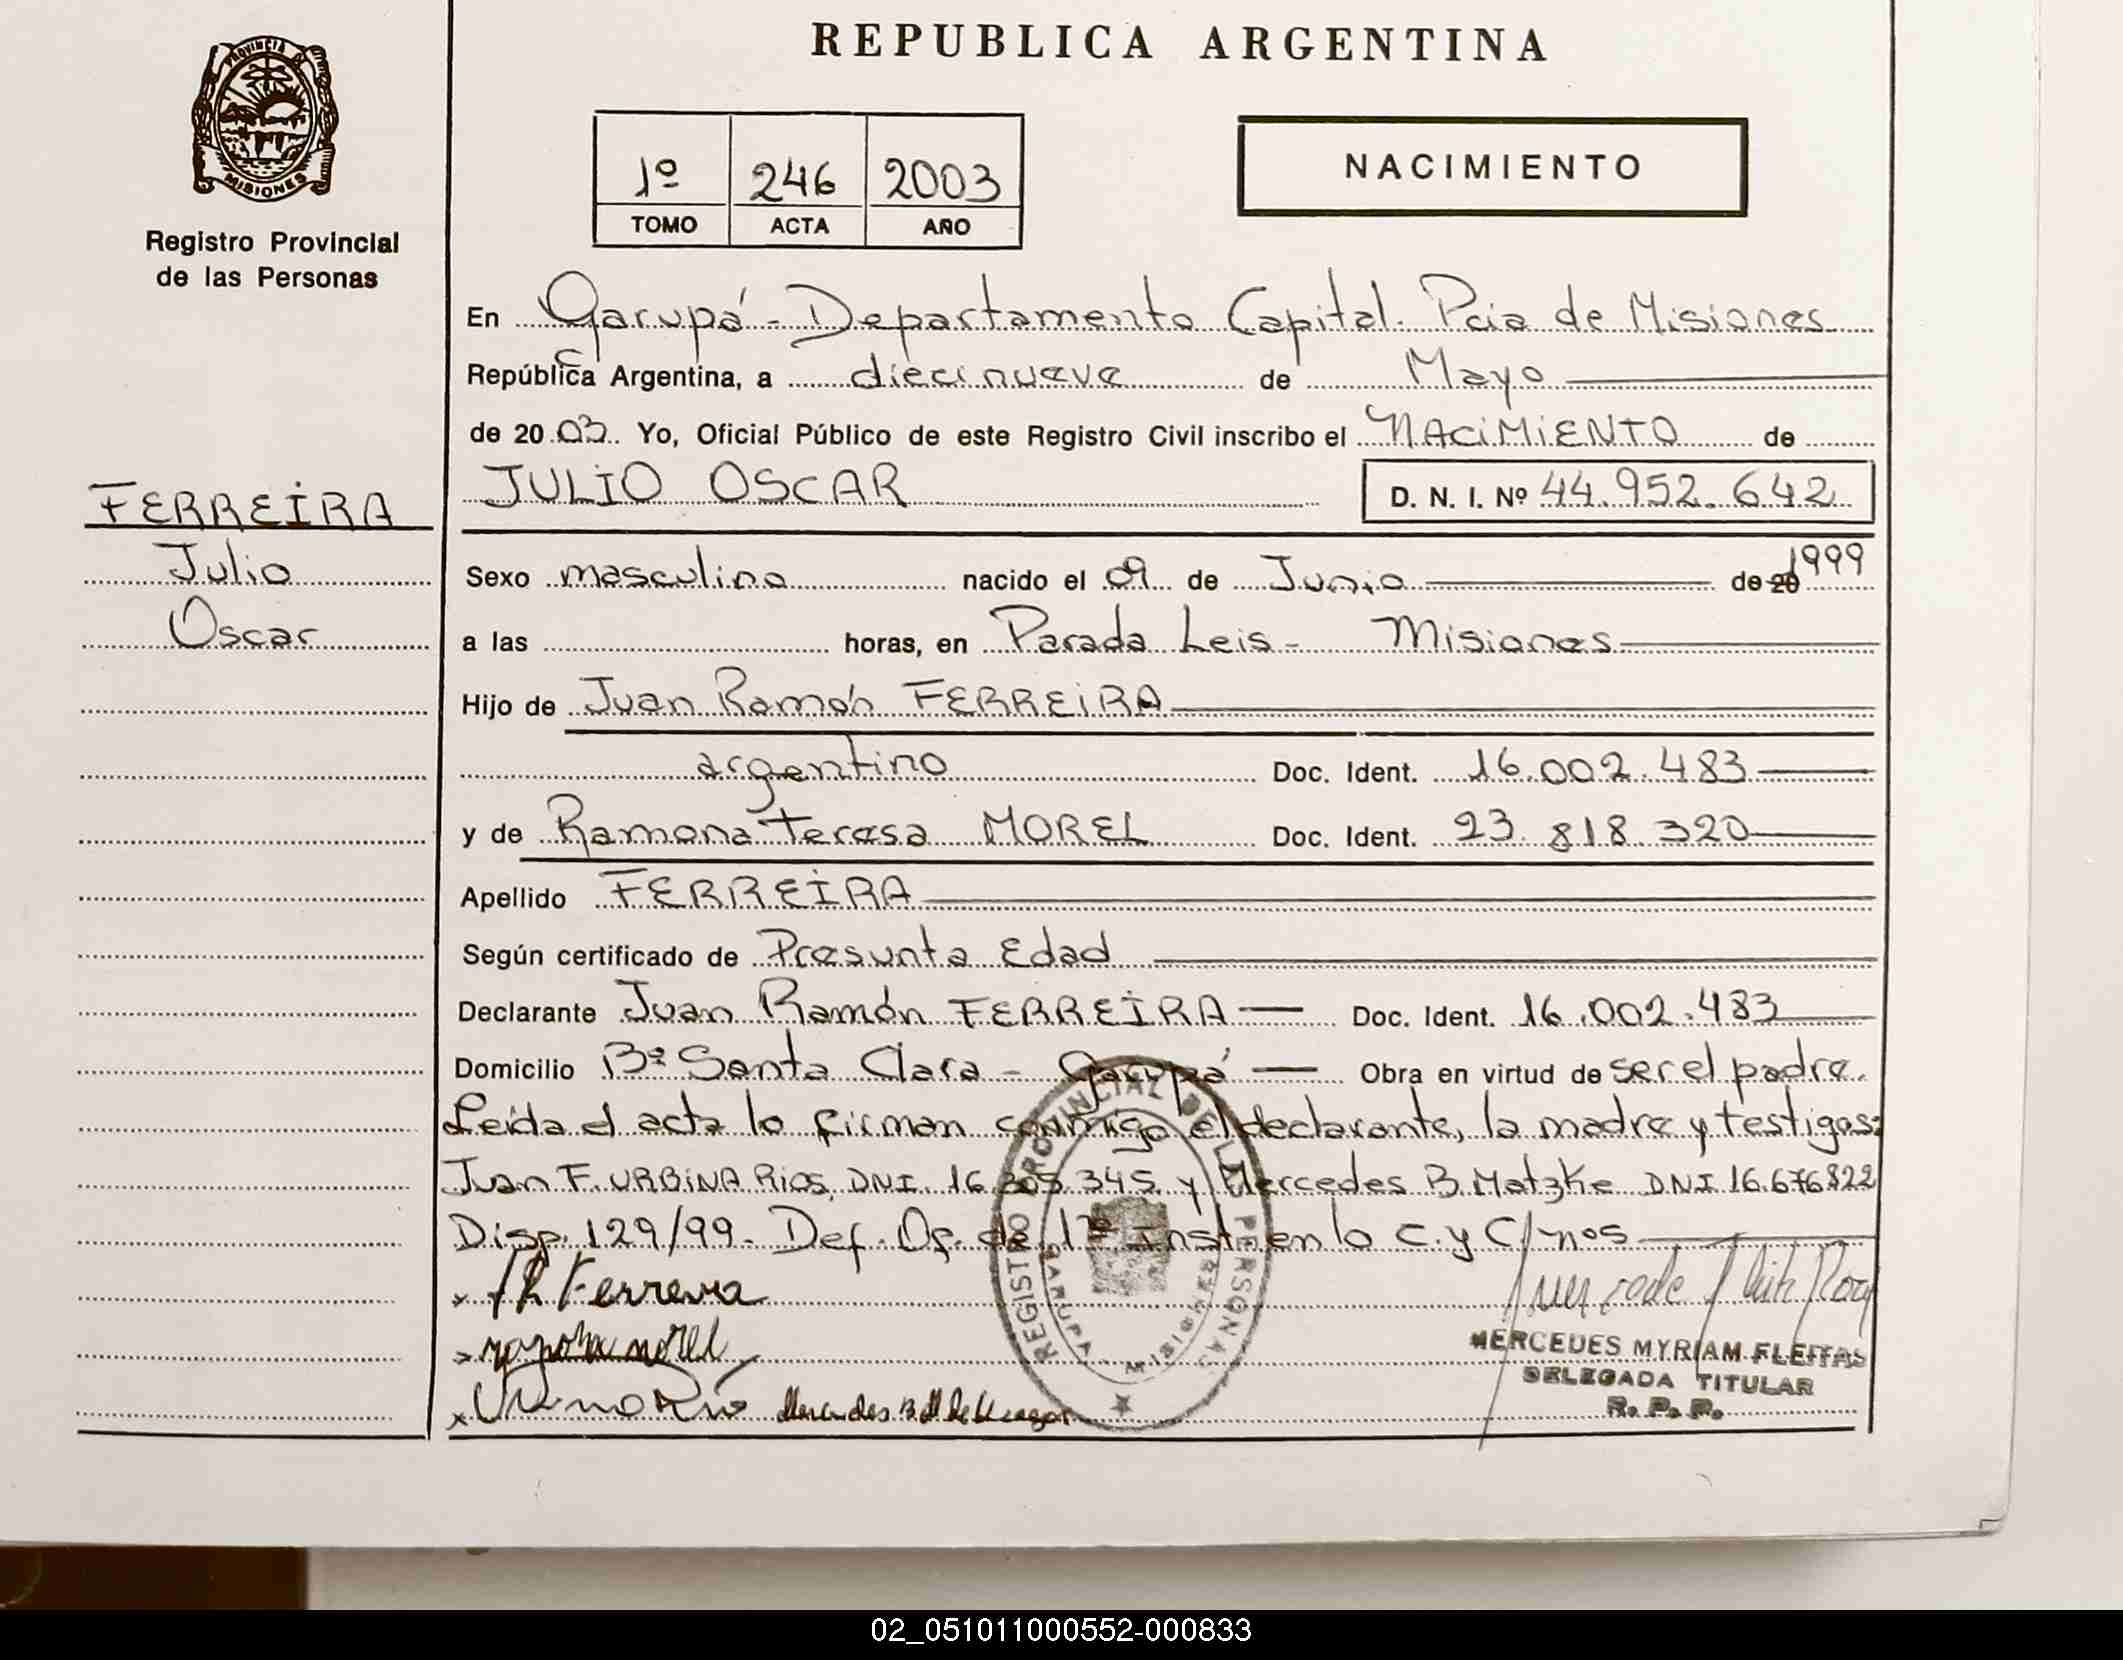 REPUBLICA ARGENTINA
PROVINCIA DE
MISIONES
Registro Provincial
de las Personas
1º 246 2003
TOMO ACTA AÑO
NACIMIENTO
En Garupá - Departamento Capital. Pcia de Misiones
República Argentina, a diecinueve de Mayo
de 2003. Yo, Oficial Público de este Registro Civil inscribo el NACIMIENTO de
FERREIRA
Julio
Oscar
JULIO OSCAR D. N. I. Nº 44.952.642
Sexo masculino nacido el 09 de Junio de 20 1999
a las horas, en Parada Leis - Misiones
Hijo de Juan Ramón FERREIRA
argentino Doc. Ident. 16.002.483
y de Ramona Teresa MOREL Doc. Ident. 23.818.320
Apellido FERREIRA
Según certificado de Presunta Edad
Declarante Juan Ramón FERREIRA Doc. Ident. 16.002.483
Domicilio Bº Santa Clara - Garupá Obra en virtud de ser el padre.
Leída el acta lo firman conmigo el declarante, la madre y testigos:
Juan F. URBINA Rios, DNI. 16.305.345. y Mercedes B. Matzke DNI 16.676822
Disp. 129/99. Def. Of. de 1ª inst. en lo C. y C/nos
REGISTRO PROVINCIAL DE LAS PERSONAS
GARUPA - Misiones
x Ferreira
x morel
x
MERCEDES MYRIAM FLEITAS
DELEGADA TITULAR
R. P. P.
02_051011000552-000833